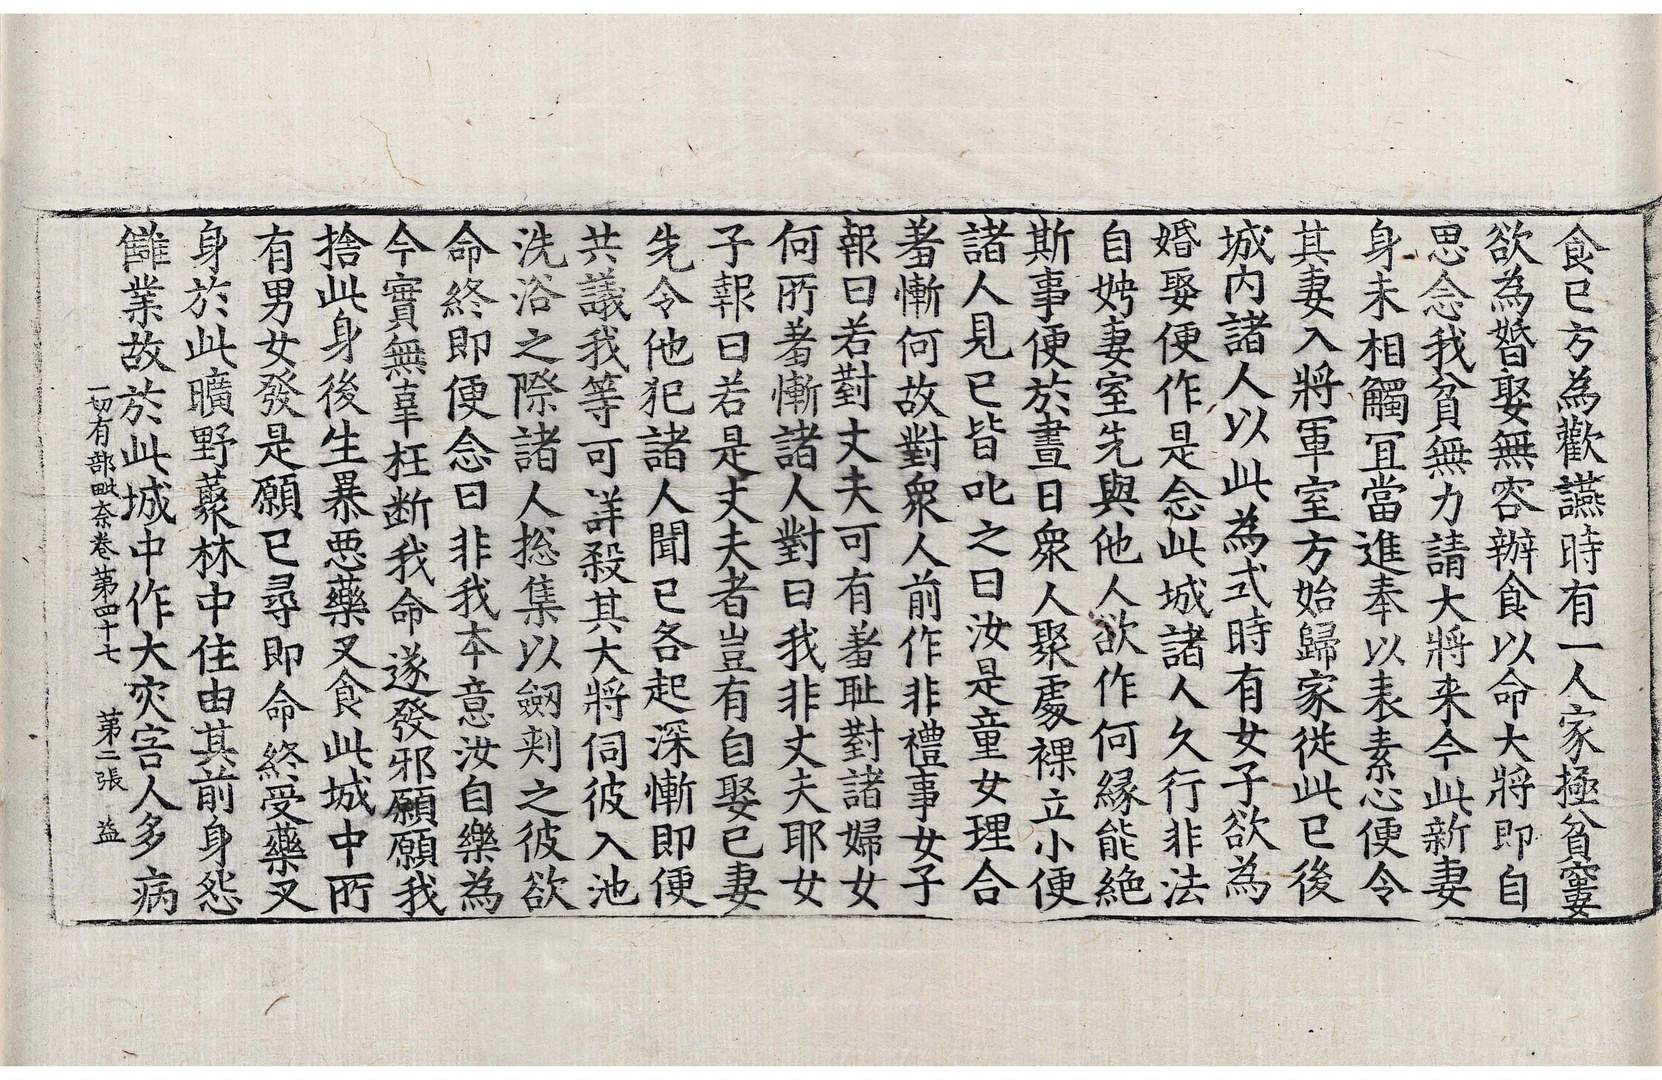 食已方為歡讌時有一人家極貧窶
欲為婚娶無容辦食以命大將即自
思念我貧無力請大將来今此新妻
身未相觸冝當進奉以表素心便令
其妻入將軍室方始歸家從此已後
城内諸人以此為式時有女子欲為
婚娶便作是念此城諸人久行非法
自娉妻室先與他人欲作何緣能絶
斯事便於晝日衆人聚處裸立小便
諸人見已皆叱之曰汝是童女理合
羞慚何故對衆人前作非禮事女子
報曰若對丈夫可有羞耻對諸婦女
何所羞慚諸人對曰我非丈夫耶女
子報曰若是丈夫者豈有自娶已妻
先令他犯諸人聞已各起深慚即便
共議我等可詳殺其大將伺彼入池
洗浴之際諸人捴集以劔刾之彼欲
命終即便念曰非我本意汝自樂為
今實無辜枉断我命遂發邪願願我
捨此身後生暴惡藥叉食此城中所
有男女發是願已尋即命終受藥叉
身於此曠野藂林中住由其前身怨
讎業故於此城中作大灾害人多病
一切有部毗奈卷第四十七　第二張　益